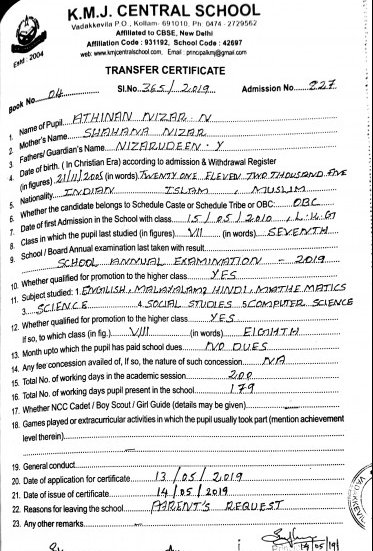 K.M.J. CENTRAL SCHOOL
Vadakkevila P.O., Kollam- 691010, Ph: 0474 - 2729562
Affiliated to CBSE, New Delhi
Affiliation Code : 931192, School Code : 42697
web: www.kmjcentralschool.com, Email : principalkmj@gmail.com
Estd : 2004
TRANSFER CERTIFICATE
Book No. 04 Sl.No. 365/2019 Admission No. 227
1. Name of Pupil ATHINAN NIZAR.N
2. Mother's Name SHAHANA NIZAR
3. Fathers/ Guardian's Name NIZARUDEEN.Y
4. Date of birth. ( In Christian Era) according to admission & Withdrawal Register
(in figures) 21/11/2005 (in words) TWENTY ONE ELEVEN TWO THOUSAND FIVE
5. Nationality INDIAN ISLAM, MUSLIM
6. Whether the candidate belongs to Schedule Caste or Schedule Tribe or OBC: OBC
7. Date of first Admission in the School with class. 15/05/2010, L.K.G
8. Class in which the pupil last studied (in figures) VII (in words) SEVENTH
9. School / Board Annual examination last taken with result
SCHOOL ANNUAL EXAMINATION - 2019
10. Whether qualified for promotion to the higher class YES
11. Subject studied : 1. ENGLISH, MALAYALAM 2 HINDI, MATHEMATICS
3. SCIENCE 4. SOCIAL STUDIES 5 COMPUTER SCIENCE
12. Whether qualified for promotion to the higher class YES
If so, to which class (in fig.) VIII (in words) EIGHTH
13. Month upto which the pupil has paid school dues NO DUES
14. Any fee concession availed of, If so, the nature of such concession NA
15. Total No. of working days in the academic session 200
16. Total No. of working days pupil present in the school 179
17. Whether NCC Cadet / Boy Scout / Girl Guide (details may be given)
18. Games played or extracurricular activities in which the pupil usually took part (mention achievement
level therein)
19. General conduct
20. Date of application for certificate 13/05/2019
21. Date of issue of certificate 14/05/2019
22. Reasons for leaving the school PARENT'S REQUEST
23. Any other remarks
14/05/19